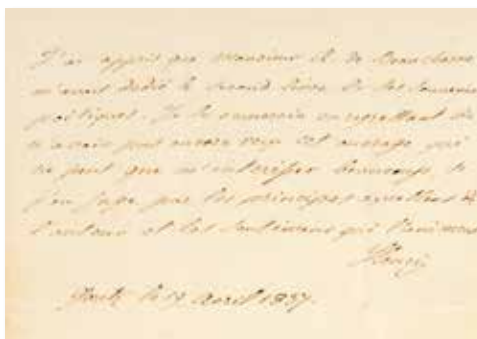 J'ai appris que monsieur A. de Beauchesne
m'avait dédié le second livre de ses souvenirs
poétiques. Je le remercie en regrettant de
n'avoir point encore reçu cet ouvrage qui
ne peut que m'intéresser beaucoup, si
j'en juge par les principes de
l'auteur et les sentiments qui l'animent
Henri
le 19 avril 1837.